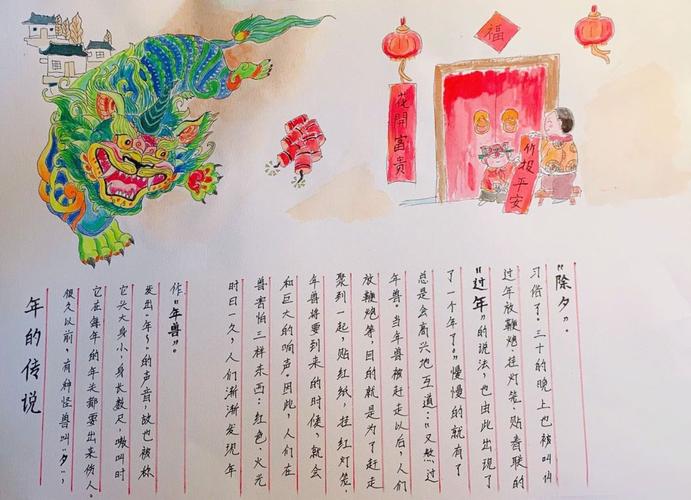 福
花開富贵
竹报平安
年的传说
很久以前，有种怪兽叫“夕”，
它在每年的年关都要出来伤人。
它头大身小，身长数尺，嗷叫时
发出“年~”的声音，故也被称
作“年兽”。
时日一久，人们渐渐发现年
兽害怕三样东西：红色、火光
和巨大的响声。因此，人们在
年兽将要到来的时候，就会
聚到一起，贴红纸，挂红灯笼，
放鞭炮等，目的就是为了赶走
年兽。当年兽被赶走以后，人们
总是会高兴地互道：“又熬过
了一个年了。”慢慢的就有了
“过年”的说法，也由此出现了
过年放鞭炮、挂灯笼、贴春联的
习俗了。三十的晚上也被叫做
“除夕”。